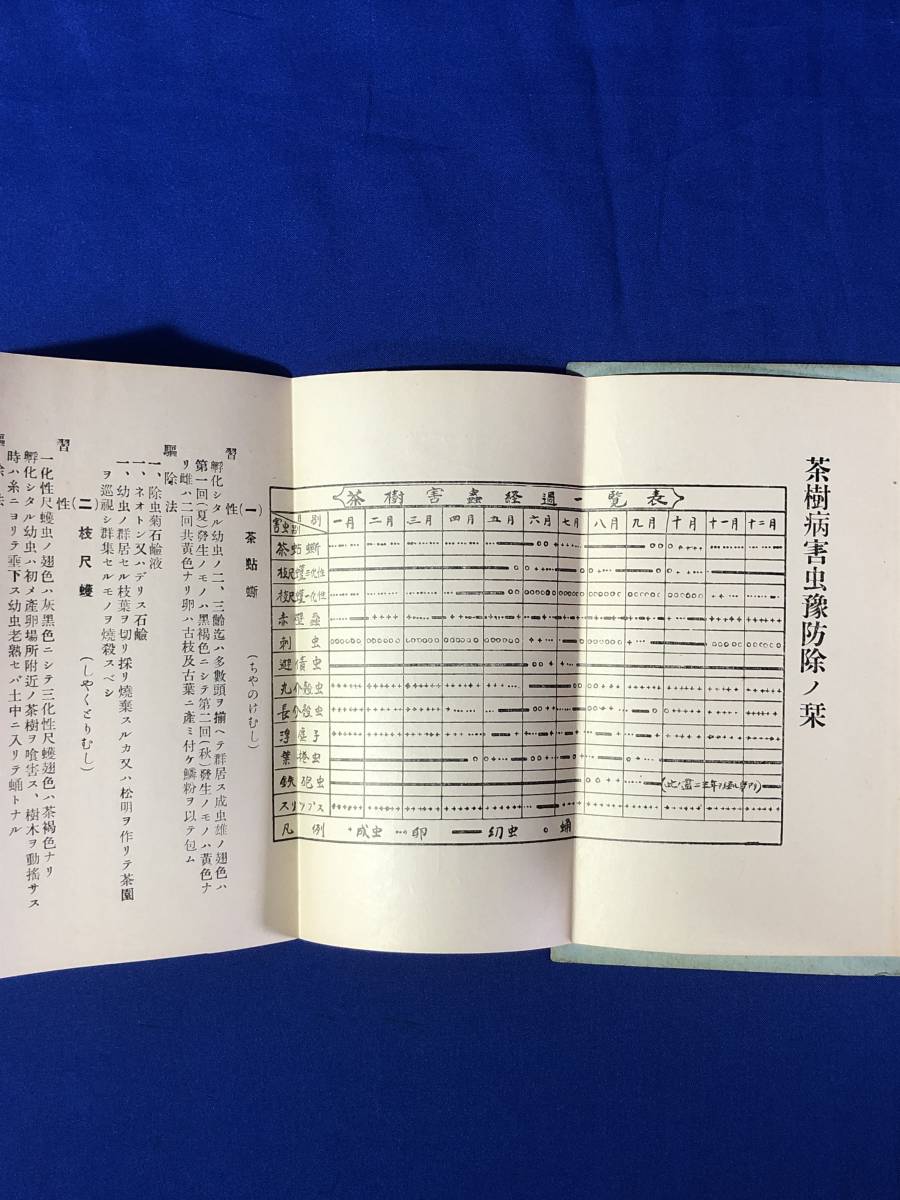 茶樹病害虫豫防除ノ栞
茶樹害蟲経過一覧表
月別 害虫別 一月 二月 三月 四月 五月 六月 七月 八月 九月 十月 十一月 十二月
茶蛄蟖
枝尺蠖三化性
枝尺蠖一化性
赤壁蝨
刺虫
避債虫
丸介殻虫
長介殻虫
浮塵子
葉捲虫
鉄砲虫
スリップス
凡例 +成虫 …卵 ━幼虫 ○蛹
(一) 茶蛄蟖 (ちやのけむし)
習性
孵化シタル幼虫ノ二、三齢迄ハ多數頭ヲ揃ヘテ群居ス成虫雄ノ翅色ハ
第一回(夏)發生ノモノハ黒褐色ニシテ第二回(秋)發生ノモノハ黄色ナ
リ雌ハ二回共黄色ナリ卵ハ古枝及古葉ニ產ミ付ケ鱗粉ヲ以テ包ム
驅除法
一、除虫菊石鹼液
一、ネオトン又ハデリス石鹼
一、幼虫ノ群居セル枝葉ヲ切リ採リ燒棄スルカ又ハ松明ヲ作リテ茶園
ヲ巡視シ群集セルモノヲ燒殺スベシ
(二) 枝尺蠖 (しやくとりむし)
習性
一化性尺蠖虫ノ翅色ハ灰黑色ニシテ三化性尺蠖翅色ハ茶褐色ナリ
孵化シタル幼虫ハ初メ產卵場所附近ノ茶樹ヲ喰害ス、樹木ヲ動搖サス
時ハ糸ニヨリテ垂下ス幼虫老熟セバ土中ニ入リテ蛹トナル